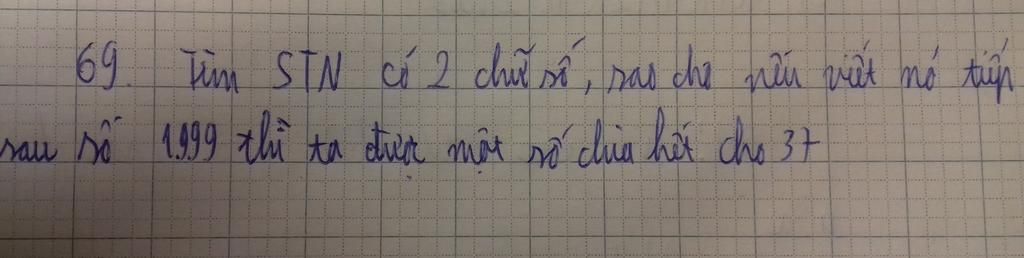 69. Tìm STN có 2 chữ số, sao cho nếu viết nó tiếp
sau số 1999 thì ta được một số chia hết cho 37